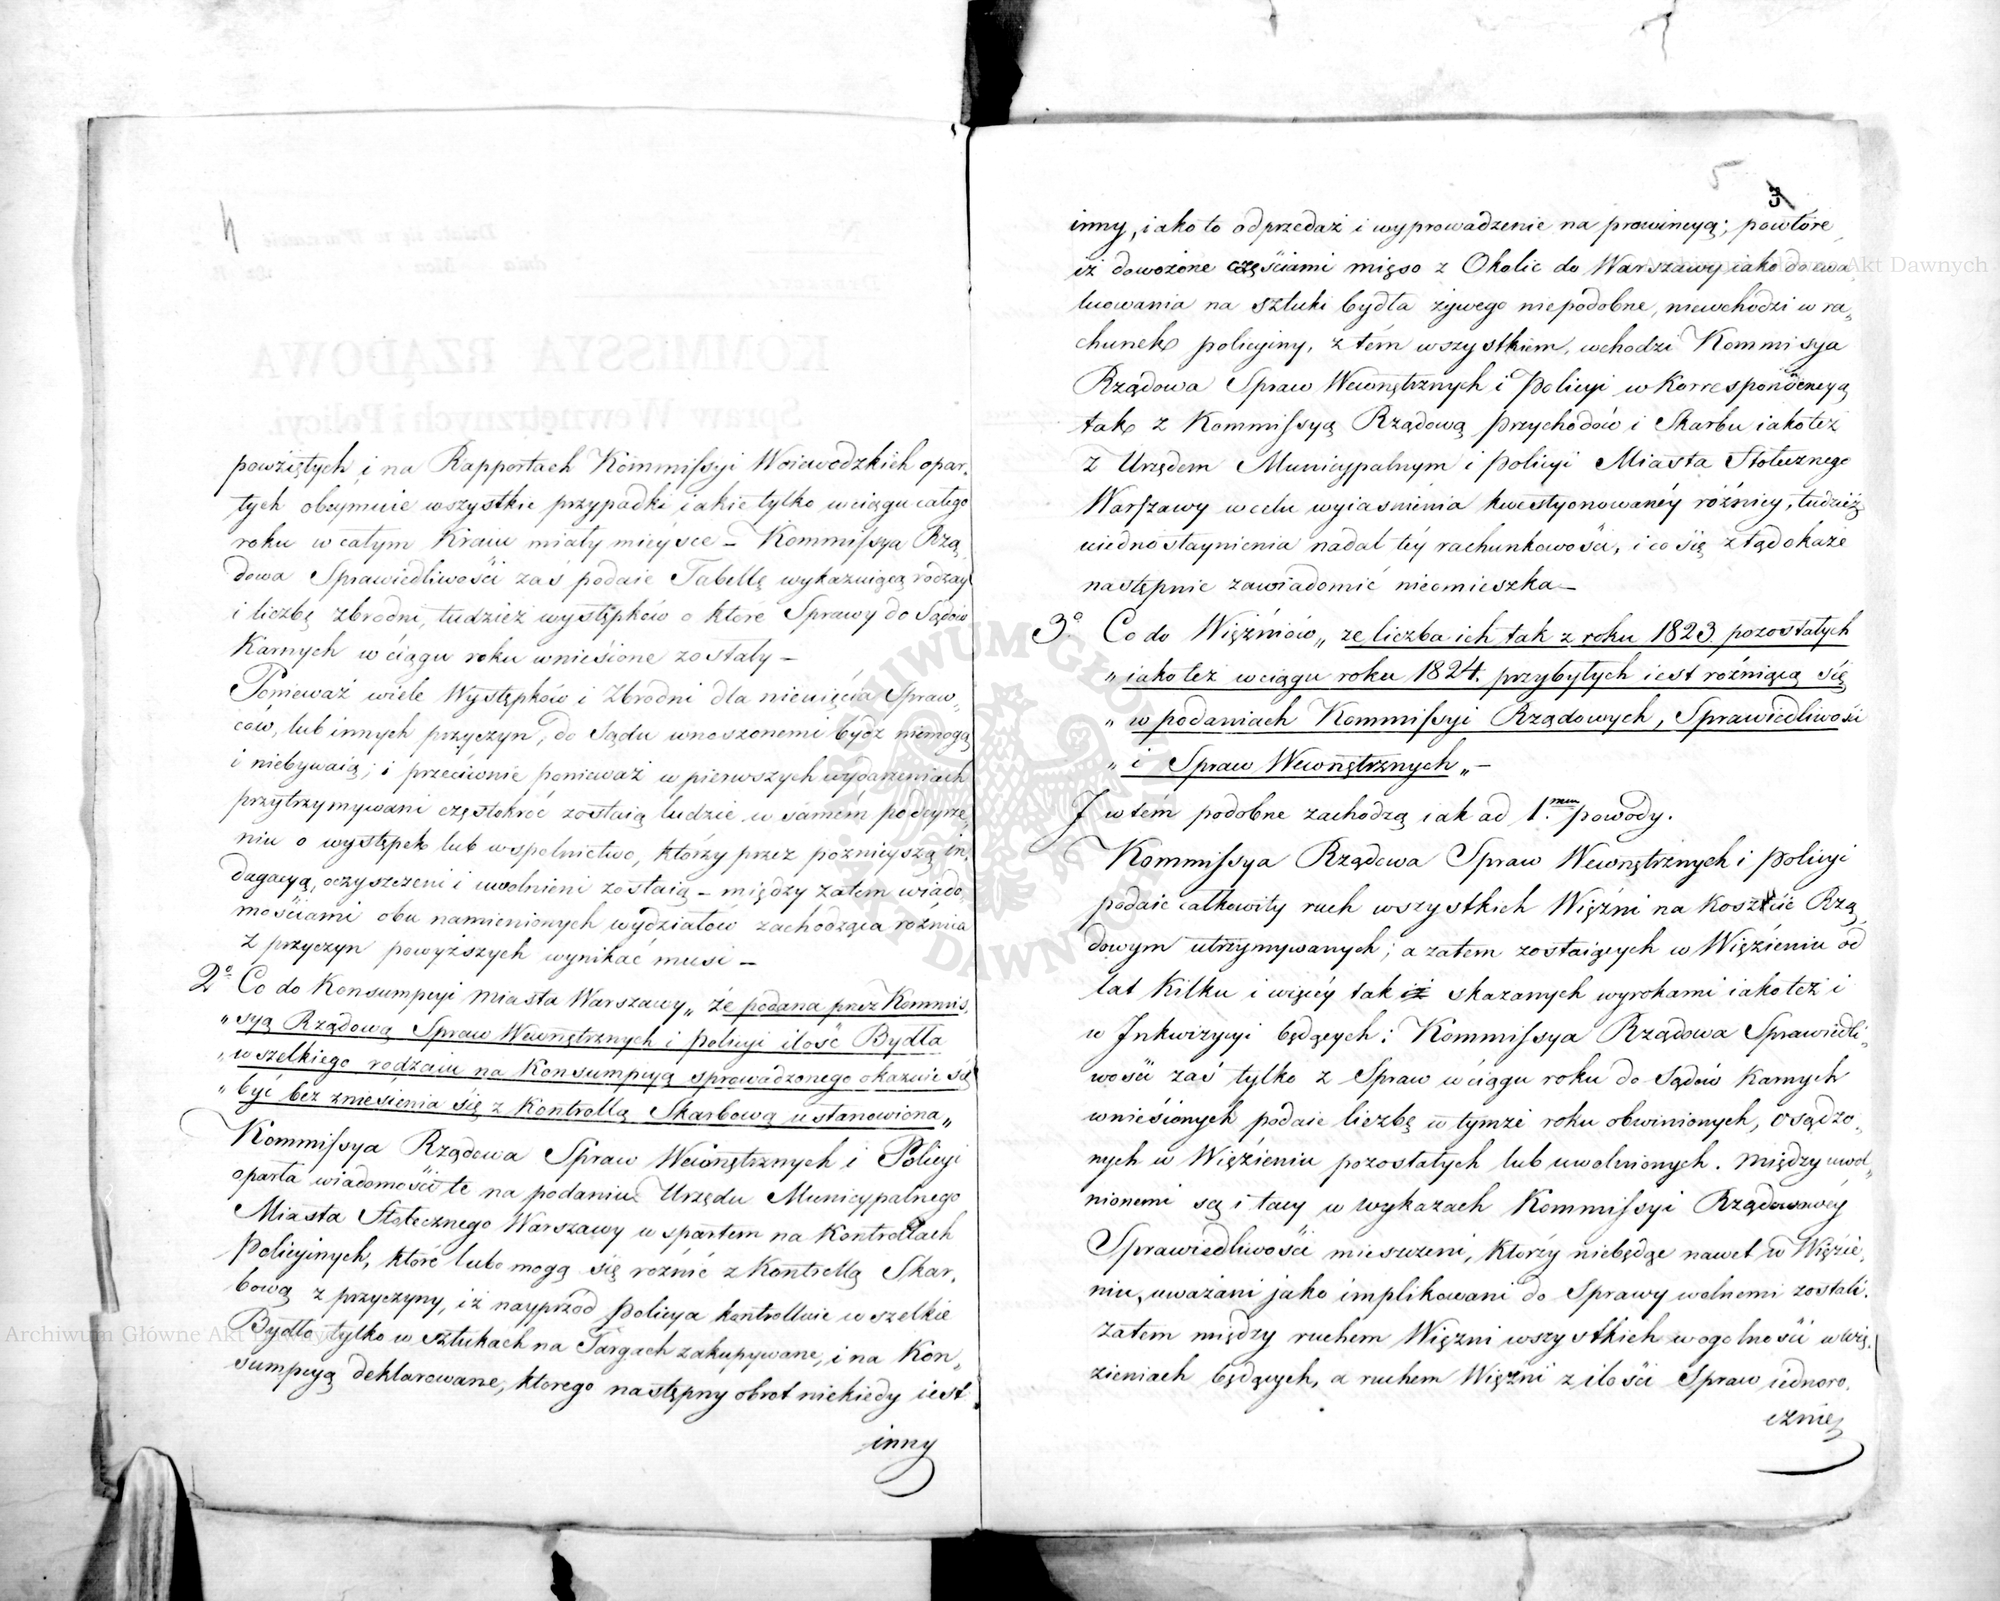 4
powziętych i na Rapportach Kommissyi Woiewodzkich opar,
tych obeymuie wszystkie przypadki iakie tylko w ciągu całego
roku w całym Kraiu miały mieysce – Kommissya Rzą,
dowa Sprawiedliwości zaś podaie Tabellę wykazuiącą rodzay
i liczbę zbrodni, tudzież występków o które Sprawy do Sądów
Karnych w ciągu roku wniesione zostały –
Ponieważ wiele Występków i Zbrodni dla nieuięcia Spraw,
ców, lub innych przyczyn, do Sądu wnoszonemi bydź niemogą
i niebywaią; i przeciwnie ponieważ w pierwszych wydarzeniach
przytrzymywani częstokroć zostaią ludzie w samém podeyrze,
niu o występek lub wspolnictwo, którzy przez poznieyszą in,
dagacyą, oczyszczeni i uwolnieni zostaią – między zatem wiado,
mościami obu namienionych wydziałów zachodząca różnica
z przyczyn powyższych wynikać musi –
2º Co do Konsumpcyi Miasta Warszawy „ że podana przez Kommis,
„ syą Rządową Spraw Wewnętrznych i Policyi ilość Bydła
„ wszelkiego rodzaiu na Konsumpcyą sprowadzonego okazuie się
„ być bez zniesienia się z Kontrollą Skarbową ustanowiona „
Kommissya Rządowa Spraw Wewnętrznych i Policyi
oparła wiadomości te na podaniu Urzędu Municypalnego
Miasta Stołecznego Warszawy wspartem na Kontrollach
Policyinych, które lubo mogą się roznić z Kontrollą Skar,
bową z przyczyny, iż nayprzod Policya kontrolluie wszelkie
Bydło tylko w sztukach na Targach zakupywane, i na Kon,
sumpcyą deklarowane, ktorego następny obrot niekiedy iest
inny
5
3
inny, iako to odprzedaż i wyprowadzenie na prowincyą; powtóre
iż dowożone częściami mięso z Okolic do Warszawy iako do ewa,
luowania na sztuki bydła żywego niepodobne, niewchodzi w ra,
chunek policyiny, z tém wszystkiem, wchodzi Kommisya
Rządowa Spraw Wewnętrznych i Policyi w Korrespondencyą
tak z Kommissyą Rządową Przychodów i Skarbu iako też
z Urzędem Municypalnym i Policyi Miasta Stołecznego
Warszawy w celu wyiaśnienia kwestyonowanéy różnicy, tudzież
uiednostaynienia nadal téy rachunkowości, i co się ztąd okaże
następnie zawiadomić nieomieszka –
3º Co do Więźniów „ że liczba ich tak z roku 1823 pozostałych
„ iako też w ciągu roku 1824. przybyłych iest rożniącą się
„ w podaniach Kommissyi Rządowych, Sprawiedliwości
„ i Spraw Wewnętrznych „ –
I w tém podobne zachodzą iak ad 1.mum powody.
Kommissya Rządowa Spraw Wewnętrznych i Policyi
podaie całkowity ruch wszystkich Więźni na koszcie Rzą,
dowym utrzymywanych; a zatem zostaiących w Więzieniu od
lat kilku i więcéy tak skazanych wyrokami iako też i
w Inkwizycyi będących; Kommissya Rządowa Sprawiedli,
wości zaś tylko z Spraw w ciągu roku do Sądów Karnych
wniesionych podaie liczbę w tymże roku obwinionych, osądzo,
nych w Więzieniu pozostałych lub uwolnionych. Między uwol,
nionemi są i tacy w wykazach Kommissyi Rządowéy
Sprawiedliwości mieszczeni, którzy niebędąc nawet w Więzie,
niu, uważani jako implikowani do Sprawy wolnemi zostali.
Zatem między ruchem Więzni wszystkich w ogolności w wię,
zieniach będących, a ruchem Więzni z ilości Spraw iednoro,
cznie
Archiwum Główne Akt Dawnych
Archiwum Główne Akt Dawnych
ARCHIWUM GŁÓWNE AKT DAWNYCH